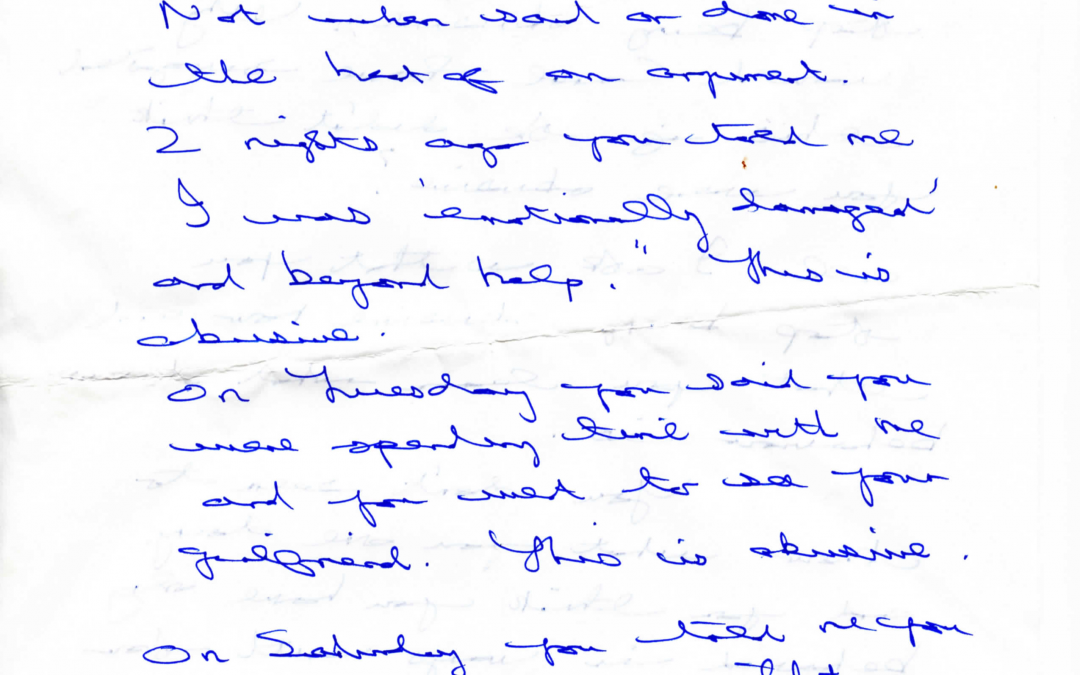 Not when said or done in
the heat of an argument.
2 nights ago you told me
I was 'emotionally damaged'
and beyond help." This is
abusive.
On Tuesday you said you
were spending time with me
and you went to see your
girlfriend. This is abusive.
On Saturday you told me you